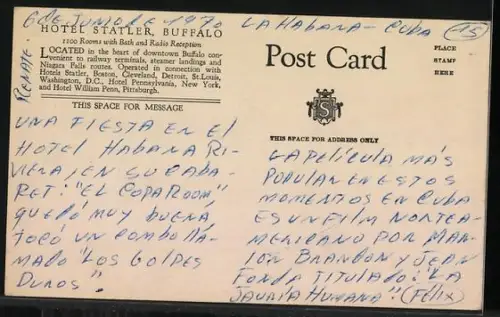 6 de Junio de 1970 LA HABANA - CUBA (15)
HOTEL STATLER, BUFFALO
1100 Rooms with Bath and Radio Reception
LOCATED in the heart of downtown Buffalo con-
venient to railway terminals, steamer landings and
Niagara Falls routes. Operated in connection with
Hotels Statler, Boston, Cleveland, Detroit, St. Louis,
Washington, D.C., Hotel Pennsylvania, New York,
and Hotel William Penn, Pittsburgh.
THIS SPACE FOR MESSAGE
RENATE:
UNA FIESTA EN EL
HOTEL HABANA RI-
VIERA, EN SU CABA-
RET: "EL COPA ROOM"
QUEDÓ MUY BUENA
TOCÓ UN COMBO LLA-
MADO "LOS GOLPES
DUROS".
Post Card
PLACE
STAMP
HERE
S
THIS SPACE FOR ADDRESS ONLY
LA PELÍCULA MÁS
POPULAR EN ESTOS
MOMENTOS EN CUBA
ES UN FILM NORTEA-
MERICANO POR MAR-
LON BRANDON Y JEAN
FONDA TITULADO: "LA
JAURÍA HUMANA". (FÉLIX)